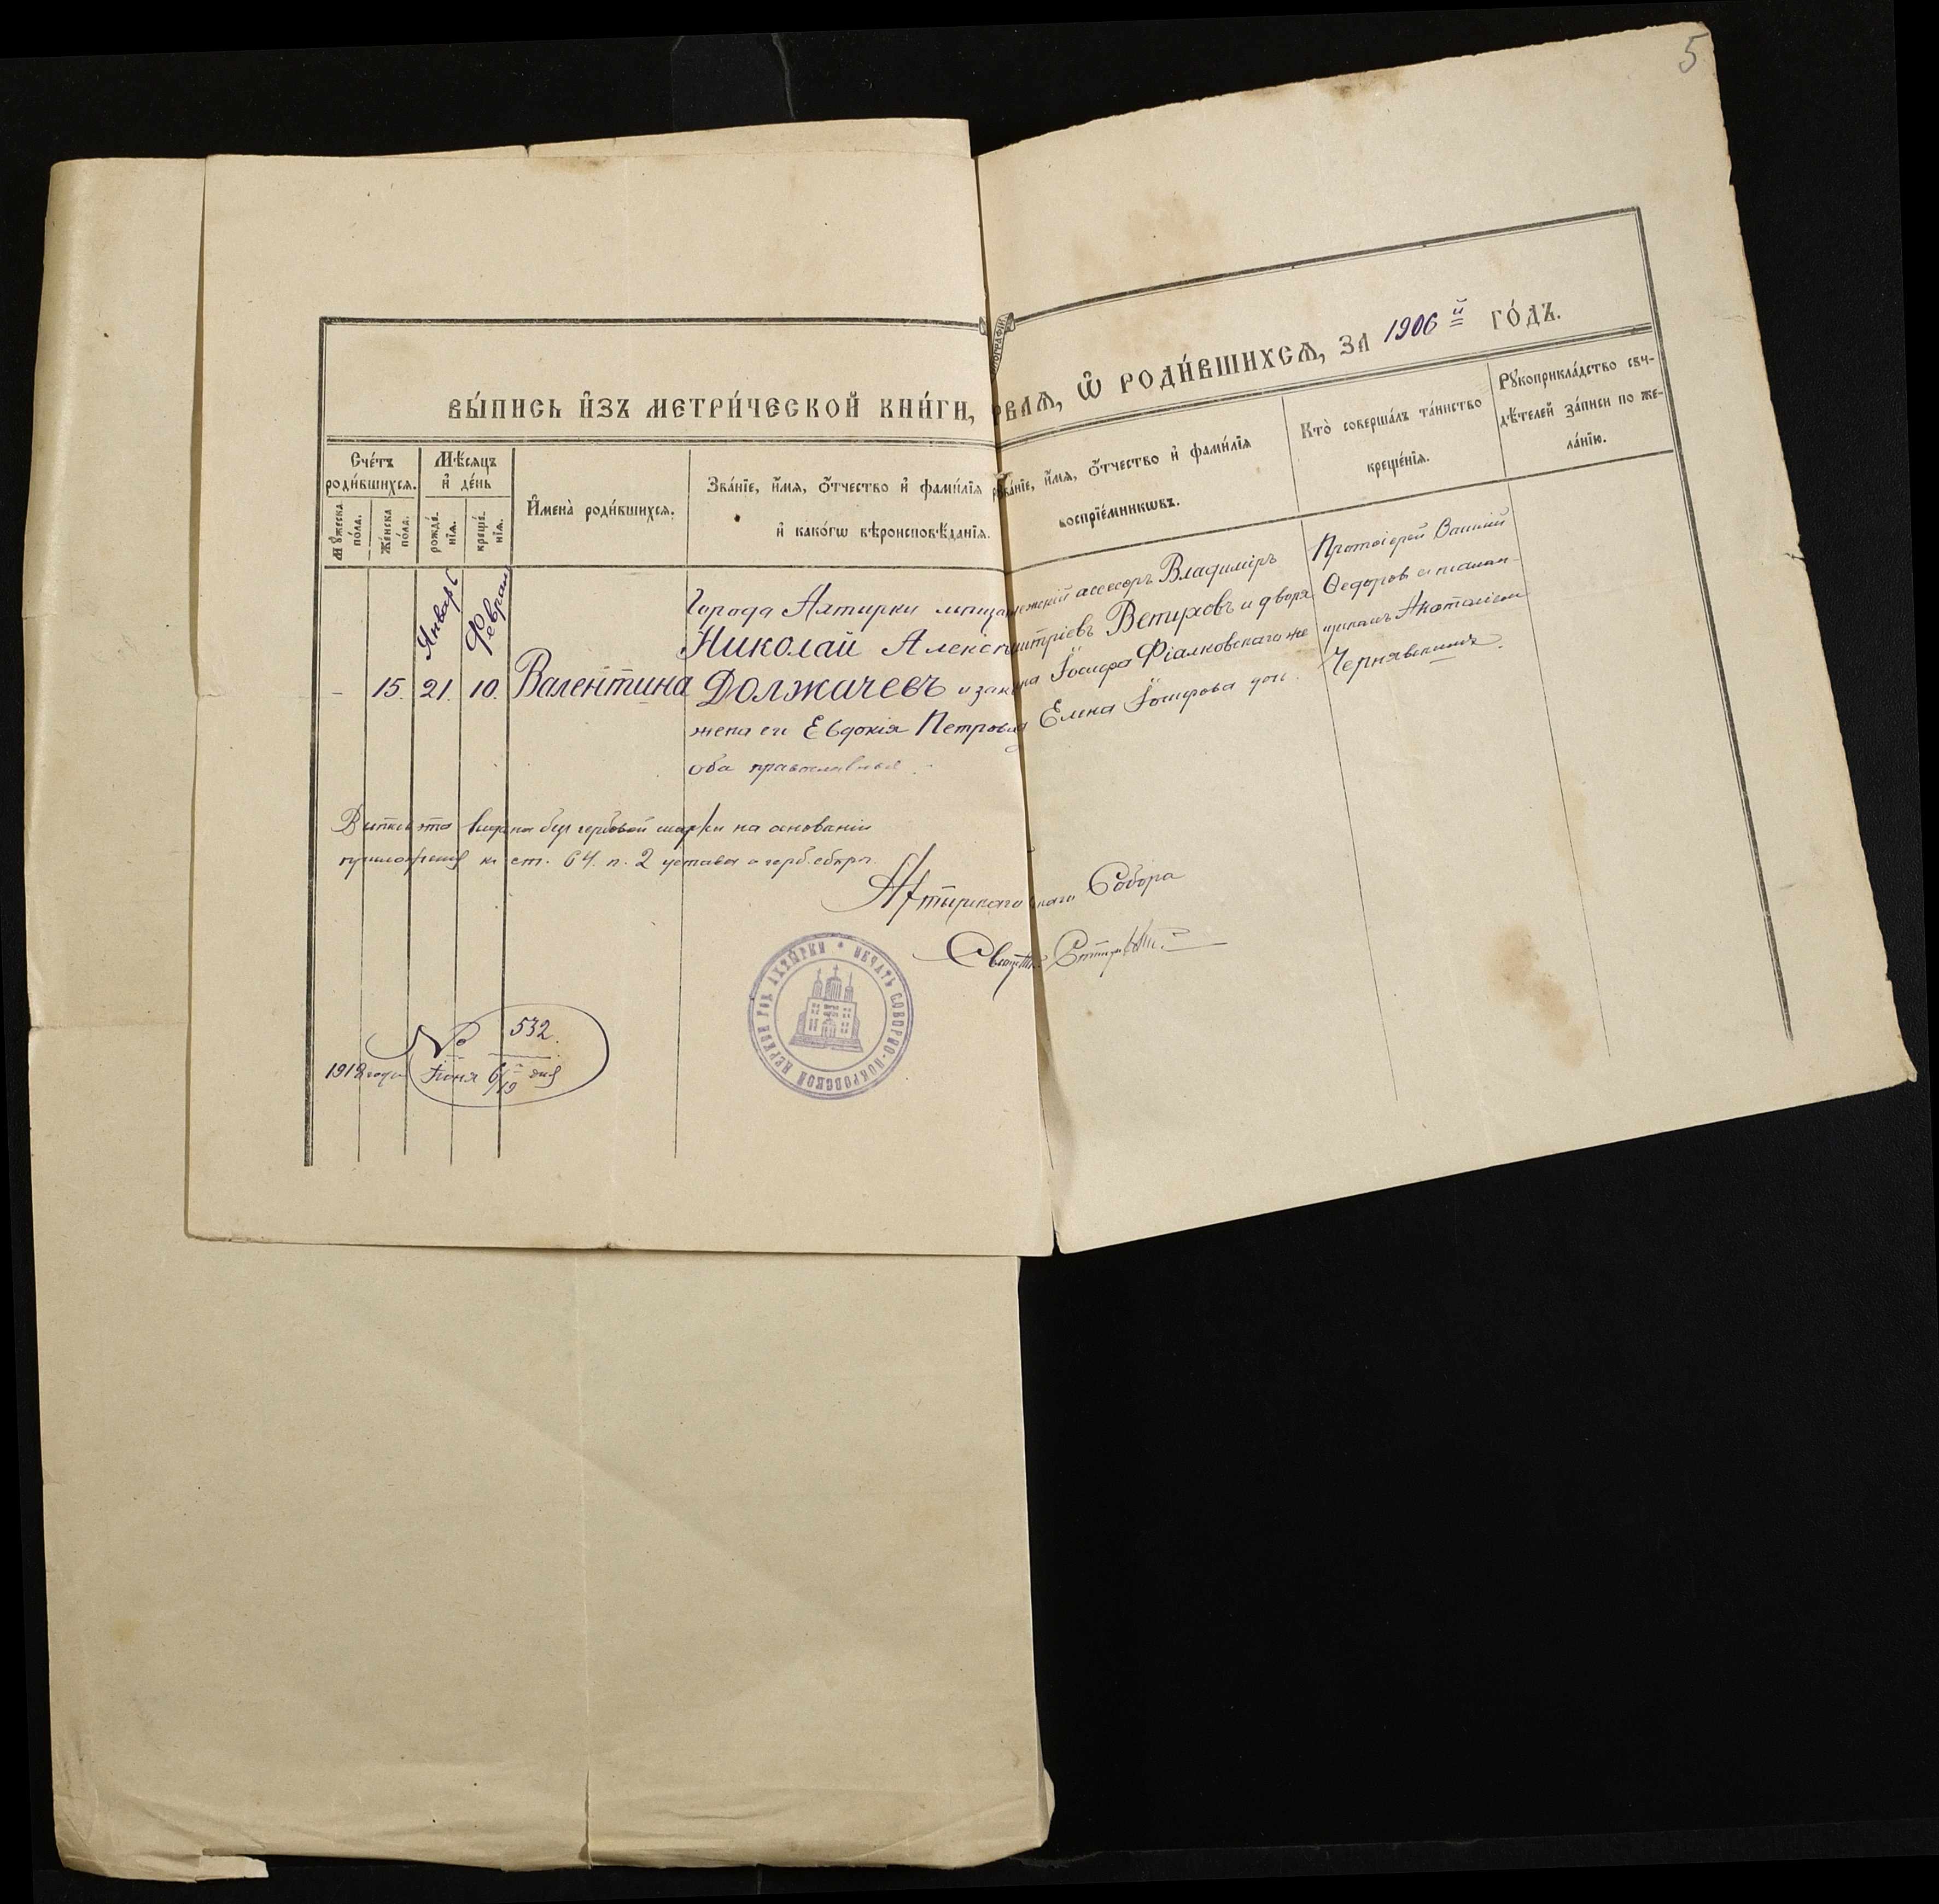 5
ВЫ́ПИСЬ И҆́ЗЪ МЕТРИ́ЧЕСКОЙ КНИ́ГИ, РВАѦ, Ѡ҆ РОДИ́ВШИХСѦ, ЗА 1906 й ГО́ДЪ.
Сче́тъ роди́вшихсѧ.
Мꙋ́жеска по́ла.
Же́нска по́ла.
Мѣ́сѧцъ и҆ де́нь
рожде́нїѧ.
креще́нїѧ.
И҆мена̀ роди́вшихсѧ.
Зва́нїе, и҆́мѧ, ѻ҆́тчество и҆ фами́лїѧ
и҆ како́гѡ вѣроисповѣ́данїѧ.
ва́нїе, и҆́мѧ, ѻ҆́тчество и҆ фами́лїѧ
воспрїе́мникѡвъ.
Кто̀ соверша́лъ та́инство
креще́нїѧ.
Рꙋкоприкла́дство свѣ-
дѣ́телей за́писи по же-
ла́нїю.
Январь
Февраль
– 15. 21. 10. Валентина
Города Ахтырки
Николай
Должичевъ и
жена его Евдокія Петрова
оба православные.
ассесоръ Владиміръ
Ветуховъ и дворя
Іосифа Фіалковскаго же
Елена Іосифова
Протоіерей Василій
Ѳедоровъ съ псалом-
щикомъ Анатоліемъ
Чернявскимъ.
Выпись эта выдана безъ гербовой марки на основаніи
приложенія къ ст. 64. п. 2 устава о герб. сборѣ.
Ахтырскаго Собора
№ 532.
1918 года Іюня 6/19 дня
ПЕЧАТЬ СОБОРНО-ПОКРОВСКОЙ ЦЕРКВИ ГОР. АХТЫРКИ